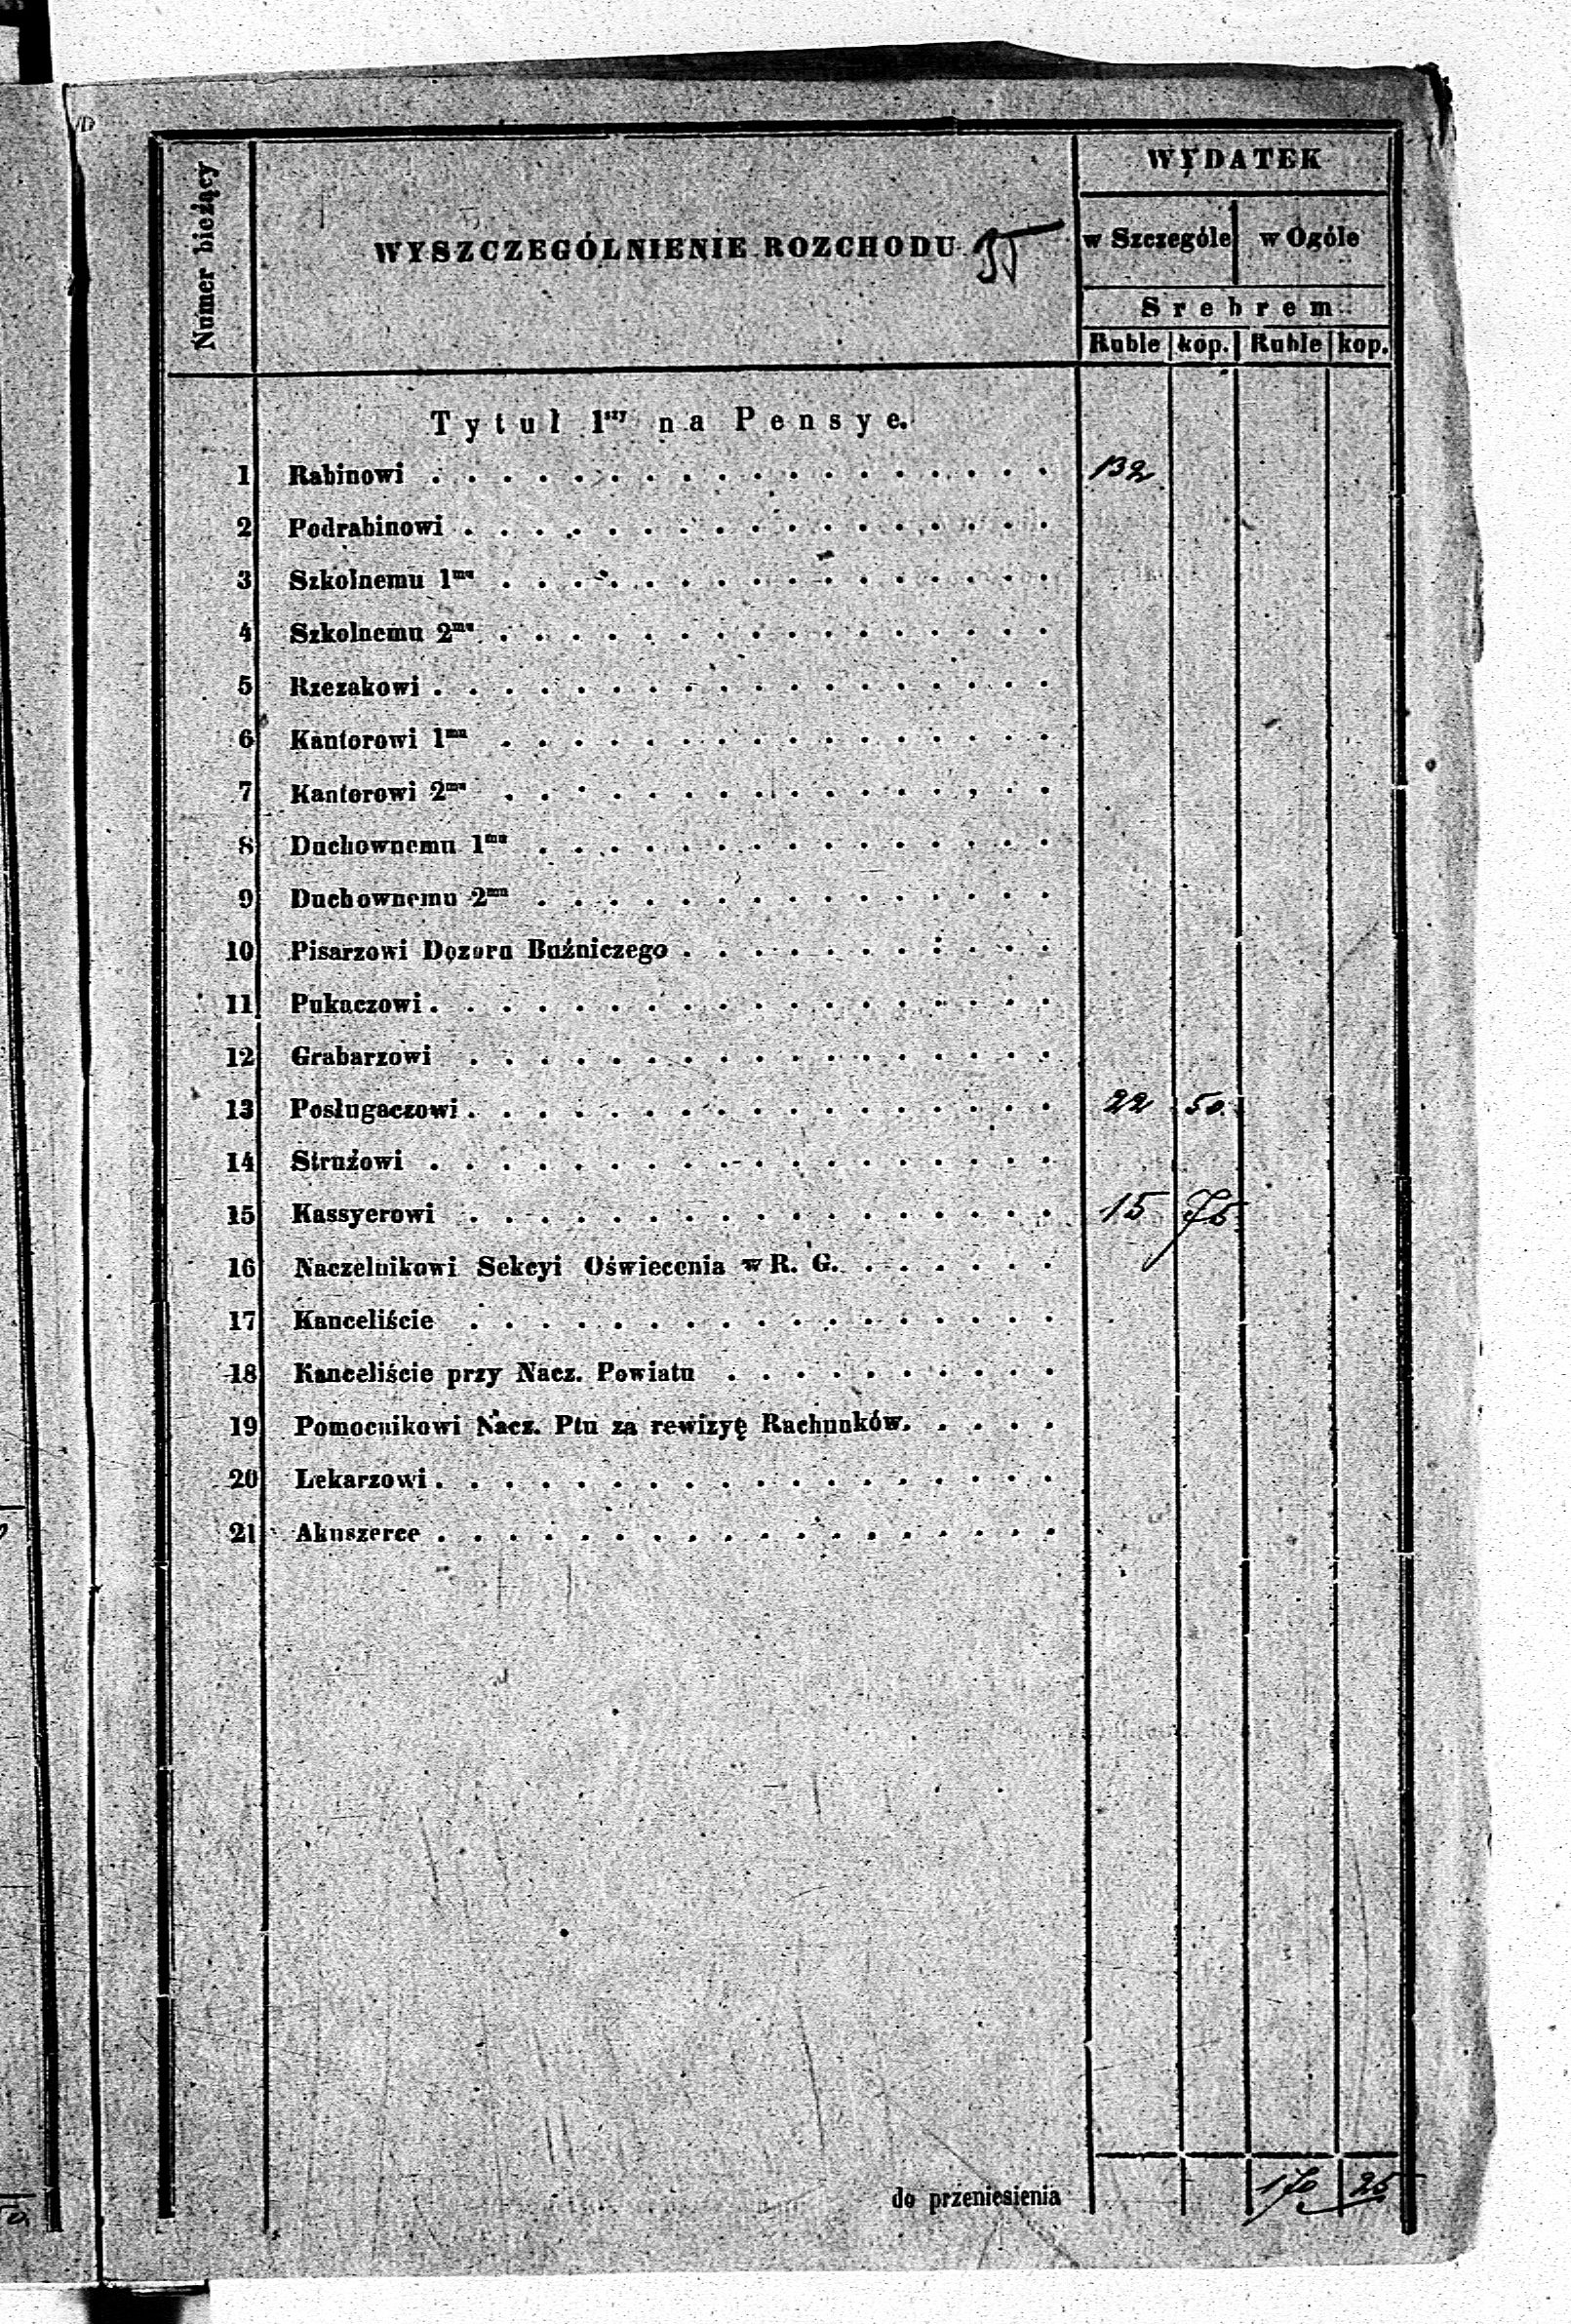 WYDATEK
Numer bieżący
WYSZCZEGÓLNIENIE ROZCHODU
w Szczególe w Ogóle
Srebrem
Ruble kop. Ruble kop.
Tytuł 1szy na Pensye.
1 Rabinowi . . . . . 132
2 Podrabinowi . . . . .
3 Szkolnemu 1mu . . . . .
4 Szkolnemu 2mu . . . . .
5 Rzezakowi . . . . .
6 Kantorowi 1mu . . . . .
7 Kantorowi 2mu . . . . .
8 Duchownemu 1mu . . . . .
9 Duchownemu 2mu . . . . .
10 Pisarzowi Dozoru Bużniczego . . . . .
11 Pukaczowi . . . . .
12 Grabarzowi . . . . .
13 Posługaczowi . . . . . 22 50
14 Strużowi . . . . .
15 Kassyerowi . . . . . 15 75
16 Naczelnikowi Sekcyi Oświecenia w R. G. . . . . .
17 Kanceliście . . . . .
18 Kanceliście przy Nacz. Powiatu . . . . .
19 Pomocnikowi Nacz. Ptu za rewizyę Rachunków. . . . .
20 Lekarzowi . . . . .
21 Akuszerce . . . . .
do przeniesienia 170 25